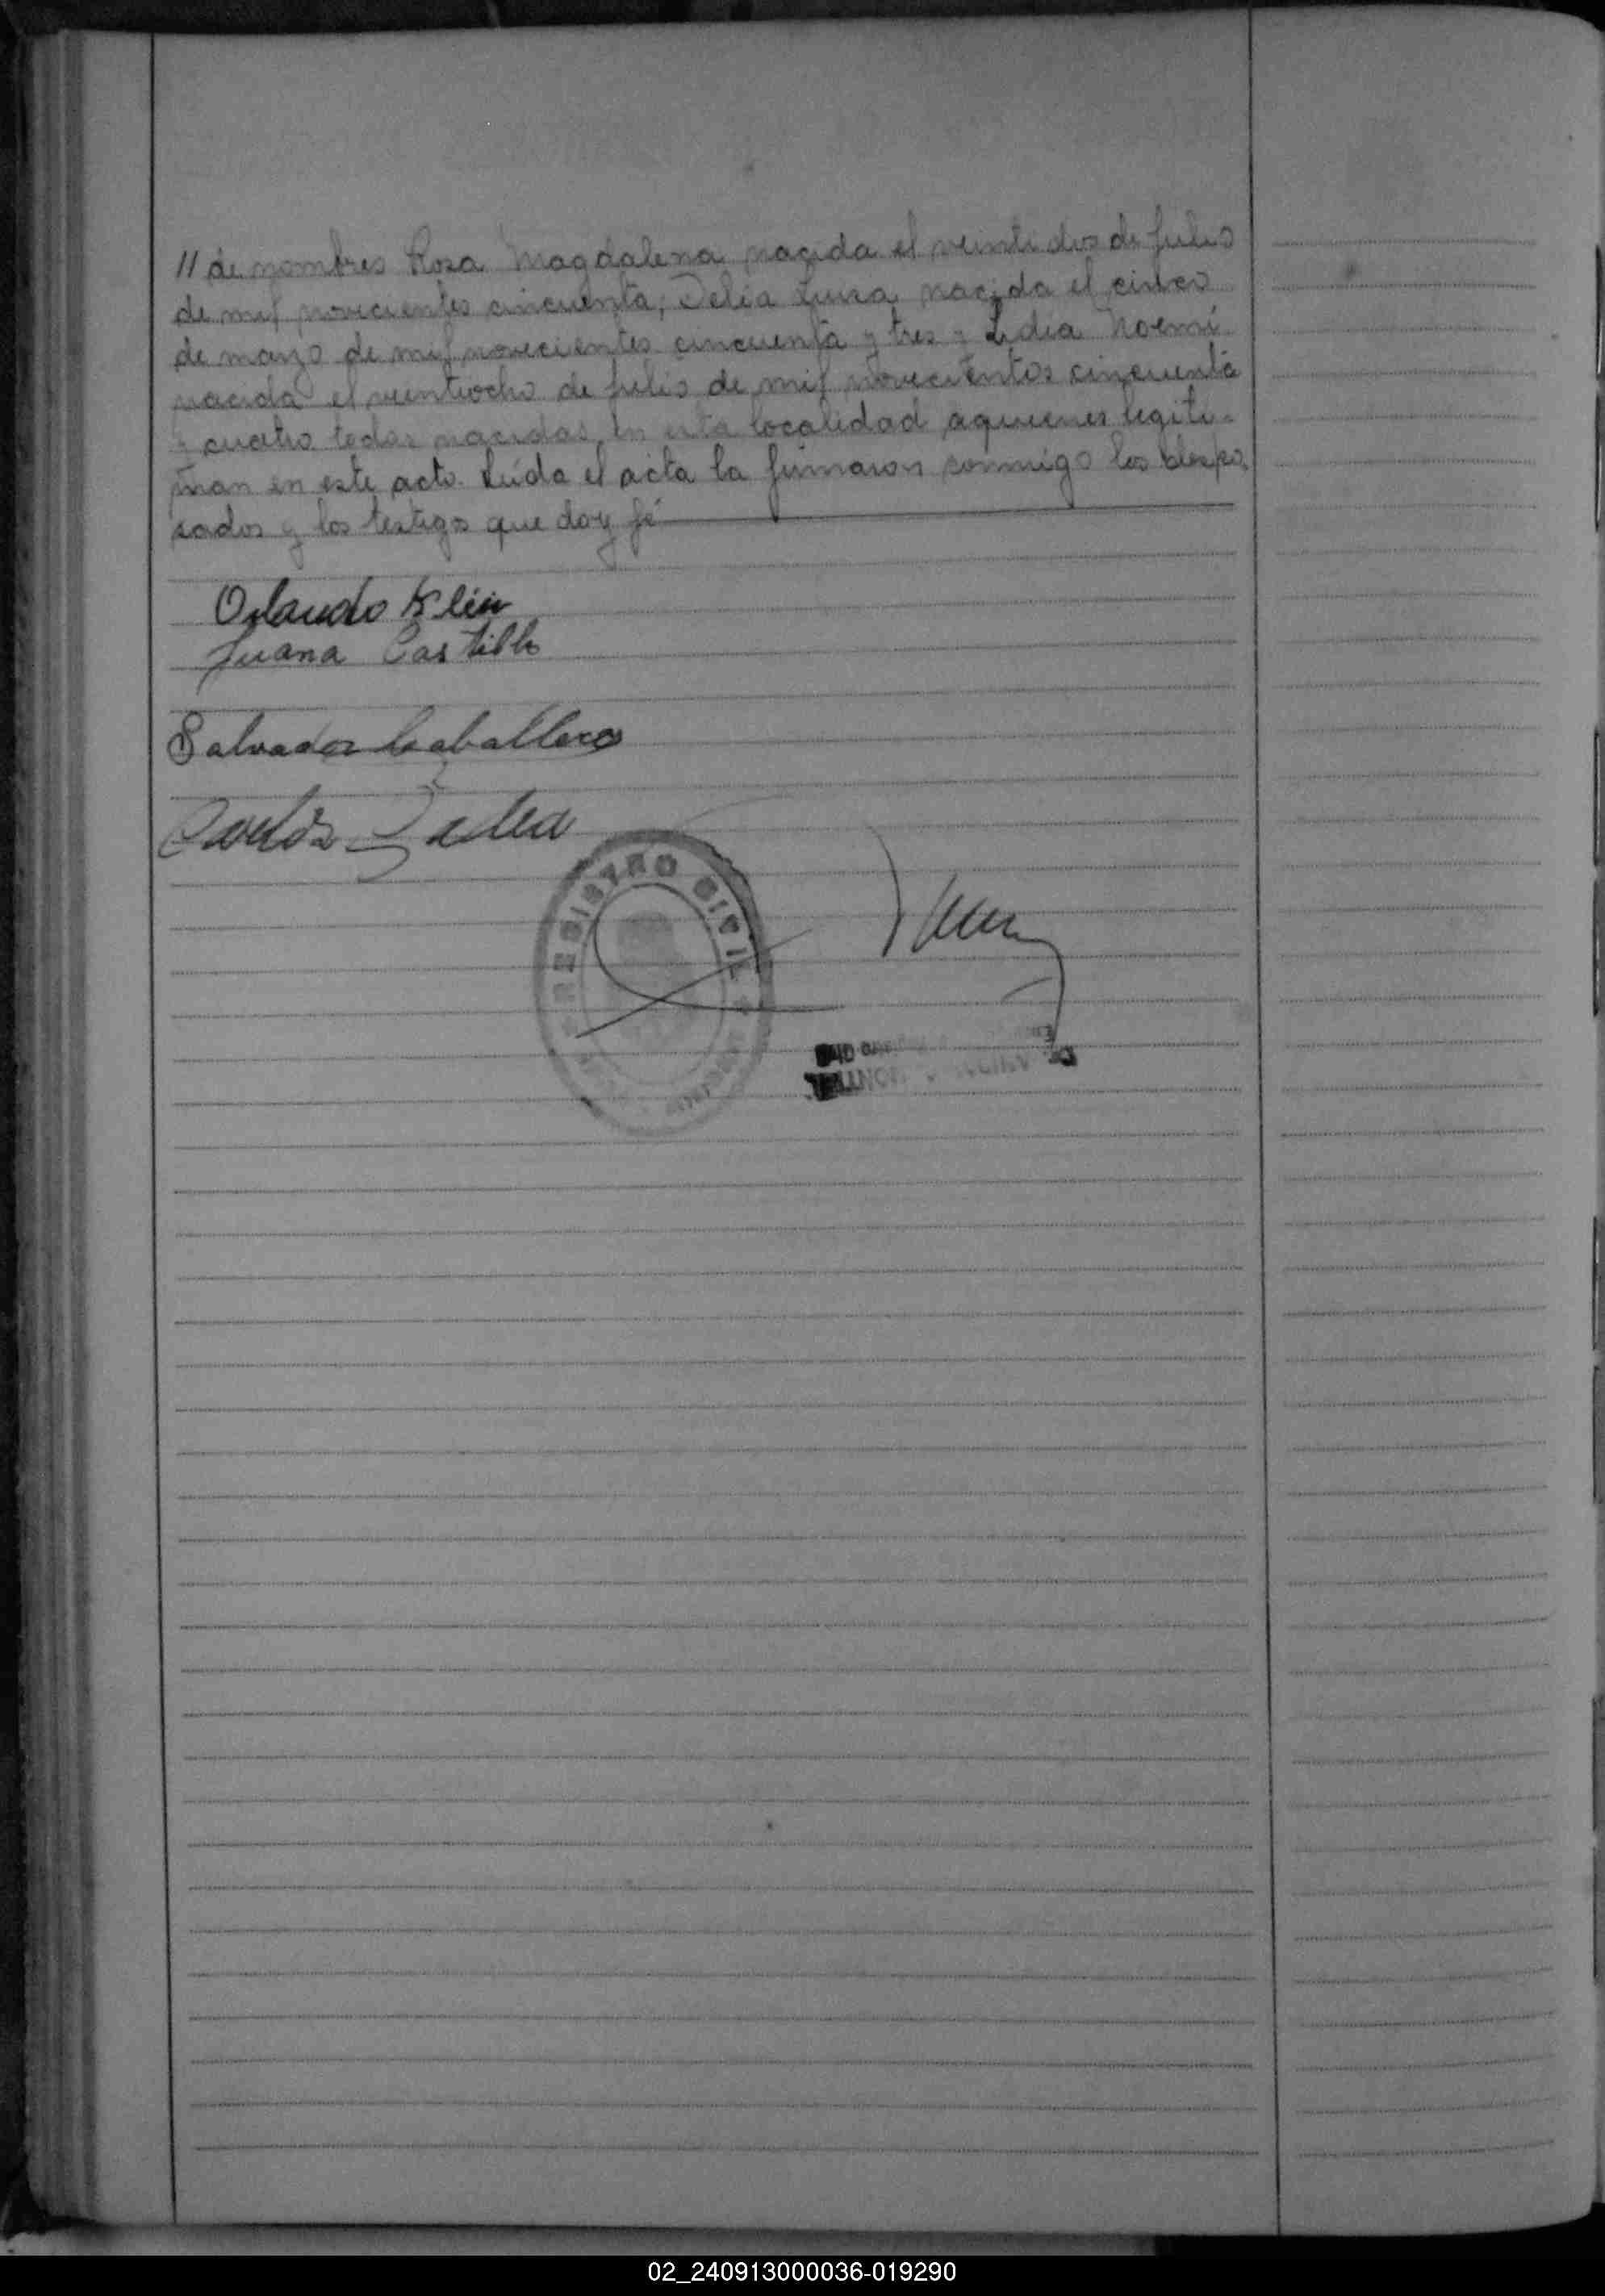 // de nombres Rosa Magdalena nacida el veinti dos de julio
de mil novecientos cincuenta; Delia Luisa nacida el cinco
de marzo de mil novecientos cincuenta y tres y Lidia Noemí
nacida el veintiocho de julio de mil novecientos cincuenta
y cuatro todas nacidas en esta localidad aquienes legiti-
man en este acto. Leída el acta la firmaron conmigo los despo-
sados y los testigos que doy fé
Orlando Klein
Juana Castillo
Salvador Caballero
Carlos
REGISTRO CIVIL
02_240913000036-019290